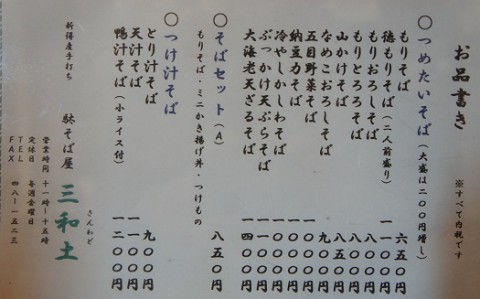 お品書き
※すべて内税です
〇つめたいそば（大盛は二〇〇円増し）
もりそば 六五〇円
徳もりそば（二人前盛り） 一一〇〇円
もりおろしそば 八〇〇円
もりとろろそば 八〇〇円
山かけそば 八五〇円
なめこおろしそば 九〇〇円
五目野菜そば 一〇〇〇円
納豆力そば 一〇〇〇円
冷やしかしわそば 一〇〇〇円
ぶっかけ天ぷらそば 一一〇〇円
大海老天ざるそば 一四〇〇円
〇そばセット（A）
もりそば・ミニかき揚げ丼・つけもの 八五〇円
〇つけ汁そば
とり汁そば 九〇〇円
天汁そば 一一〇〇円
鴨汁そば（小ライス付） 一二〇〇円
新得産手打ち
駄そば屋 三和土
さんわど
営業時間 十一時〜十五時
定休日 毎週金曜日
TEL
FAX 四八ー一五二三